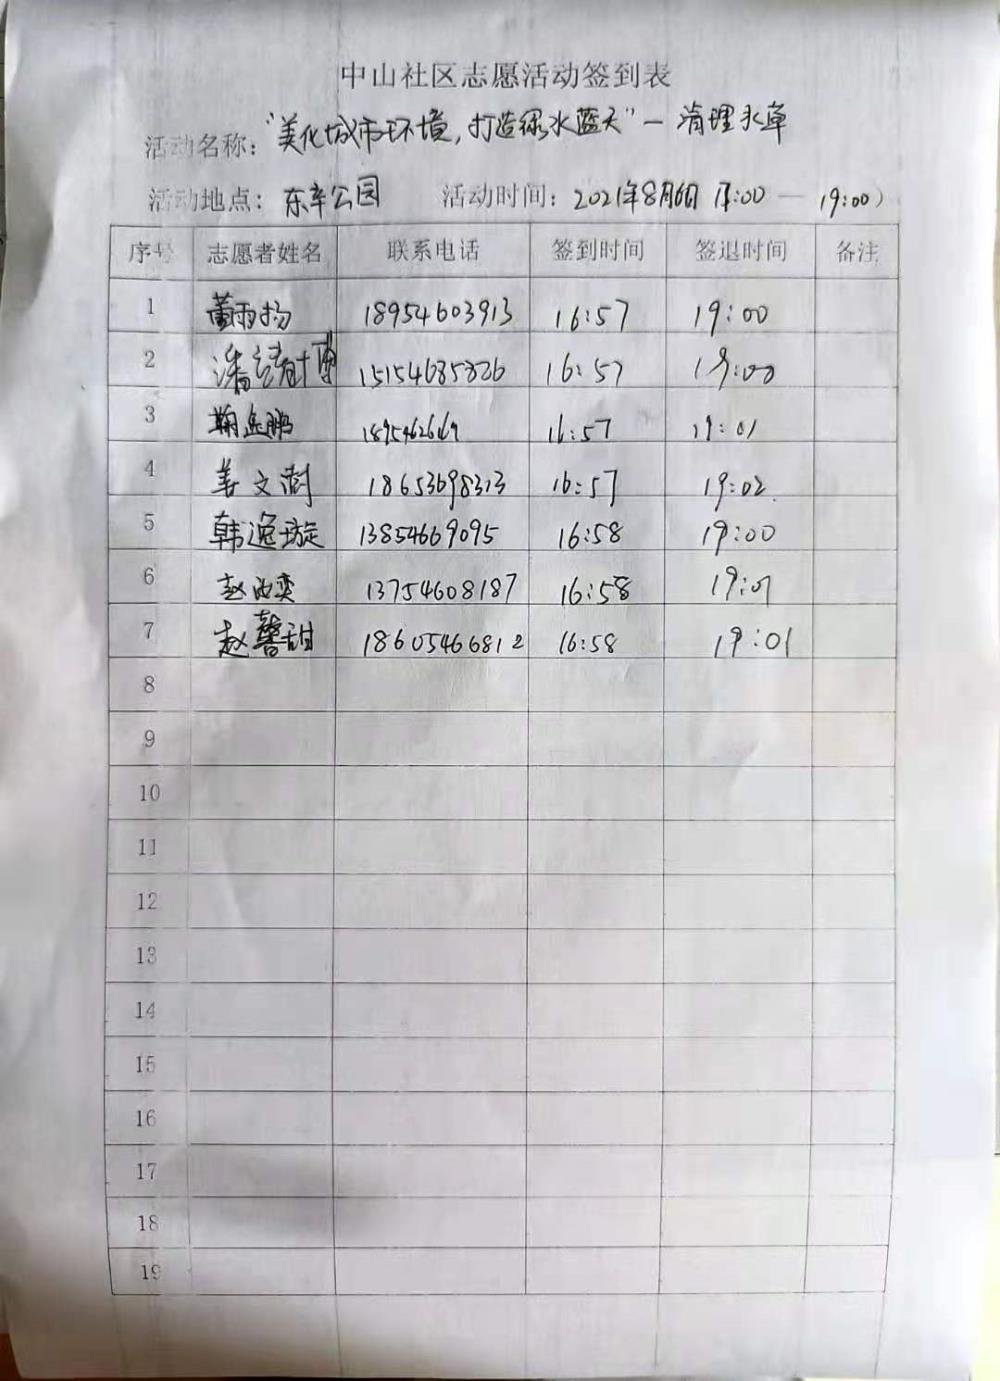 中山社区志愿活动签到表
活动名称："美化城市环境，打造绿水蓝天"— 清理水草
活动地点：东辛公园 活动时间：2021年8月6日 17:00 — 19:00）
序号 志愿者姓名 联系电话 签到时间 签退时间 备注
1 董雨扬 18954603913 16:57 19:00
2 潘 15154685826 16:57 19:00
3 鹏 16:57 19:01
4 姜文澍 18653698313 16:57 19:02
5 韩逸璇 13854669095 16:58 19:00
6 赵奕 13754608187 16:58 19:01
7 赵馨甜 18605466812 16:58 19:01
8
9
10
11
12
13
14
15
16
17
18
19